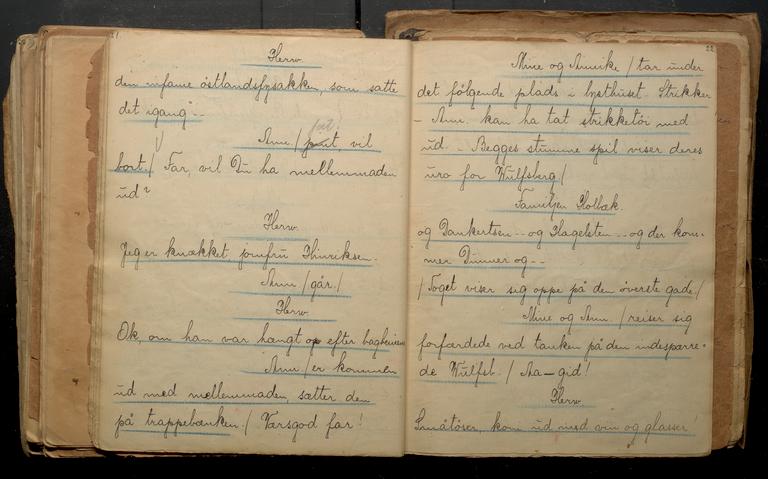 21.
Herw.
den infame östlandsfysakken, som satte
det igang"--
fort
Ann. / vil
bort / Far, vil Du ha mellemmaden
ud?
Herw.
Jeg er knækket jomfru Hinriksen.
Ann / går. /
Herw.
Ok, om han var hængt op efter bagbenene
Ann / er kommen
ud med mellemmaden, sætter den
på trappebænken. / Værsgod far!
22
Mine og Annike / tar under
det følgende plads i lysthuset. Strikker
- Ann. kan ha tat strikketöi med
ud. - Begges stumme spil viser deres
uro for Wulfsberg /
Familjen Holbæk.
og Dankertsen -- og Hagelsten -- og der kom-
mer Dinner og --
/ Toget viser sig oppe på den øverste gade /
Mine og Ann. / reiser sig
forfærdede ved tanken på den indesparre-
de Wulfsb. / Aa - gid!
Herw.
Småtöser, kom ud med vin og glasser!